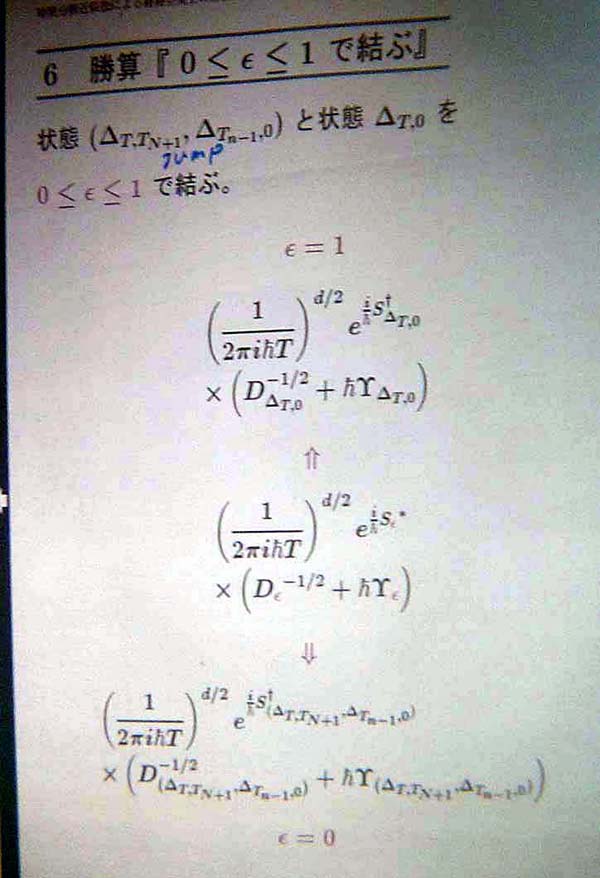 6 勝算『 0 ≤ ϵ ≤ 1 で結ぶ』
状態 (Δ_{T,T_{N+1}}, Δ_{T_{n-1},0}) と状態 Δ_{T,0} を
Jump
0 ≤ ϵ ≤ 1 で結ぶ。
ϵ = 1
(1/(2πiħT))^{d/2} e^{(i/ħ) S^†_{Δ_{T,0}}}
× (D^{-1/2}_{Δ_{T,0}} + ħΥ_{Δ_{T,0}})
⇑
(1/(2πiħT))^{d/2} e^{(i/ħ) S_ϵ^*}
× (D_ϵ^{-1/2} + ħΥ_ϵ)
⇓
(1/(2πiħT))^{d/2} e^{(i/ħ) S^†_{(Δ_{T,T_{N+1}}, Δ_{T_{n-1},0})}}
× (D^{-1/2}_{(Δ_{T,T_{N+1}}, Δ_{T_{n-1},0})} + ħΥ_{(Δ_{T,T_{N+1}}, Δ_{T_{n-1},0})})
ϵ = 0